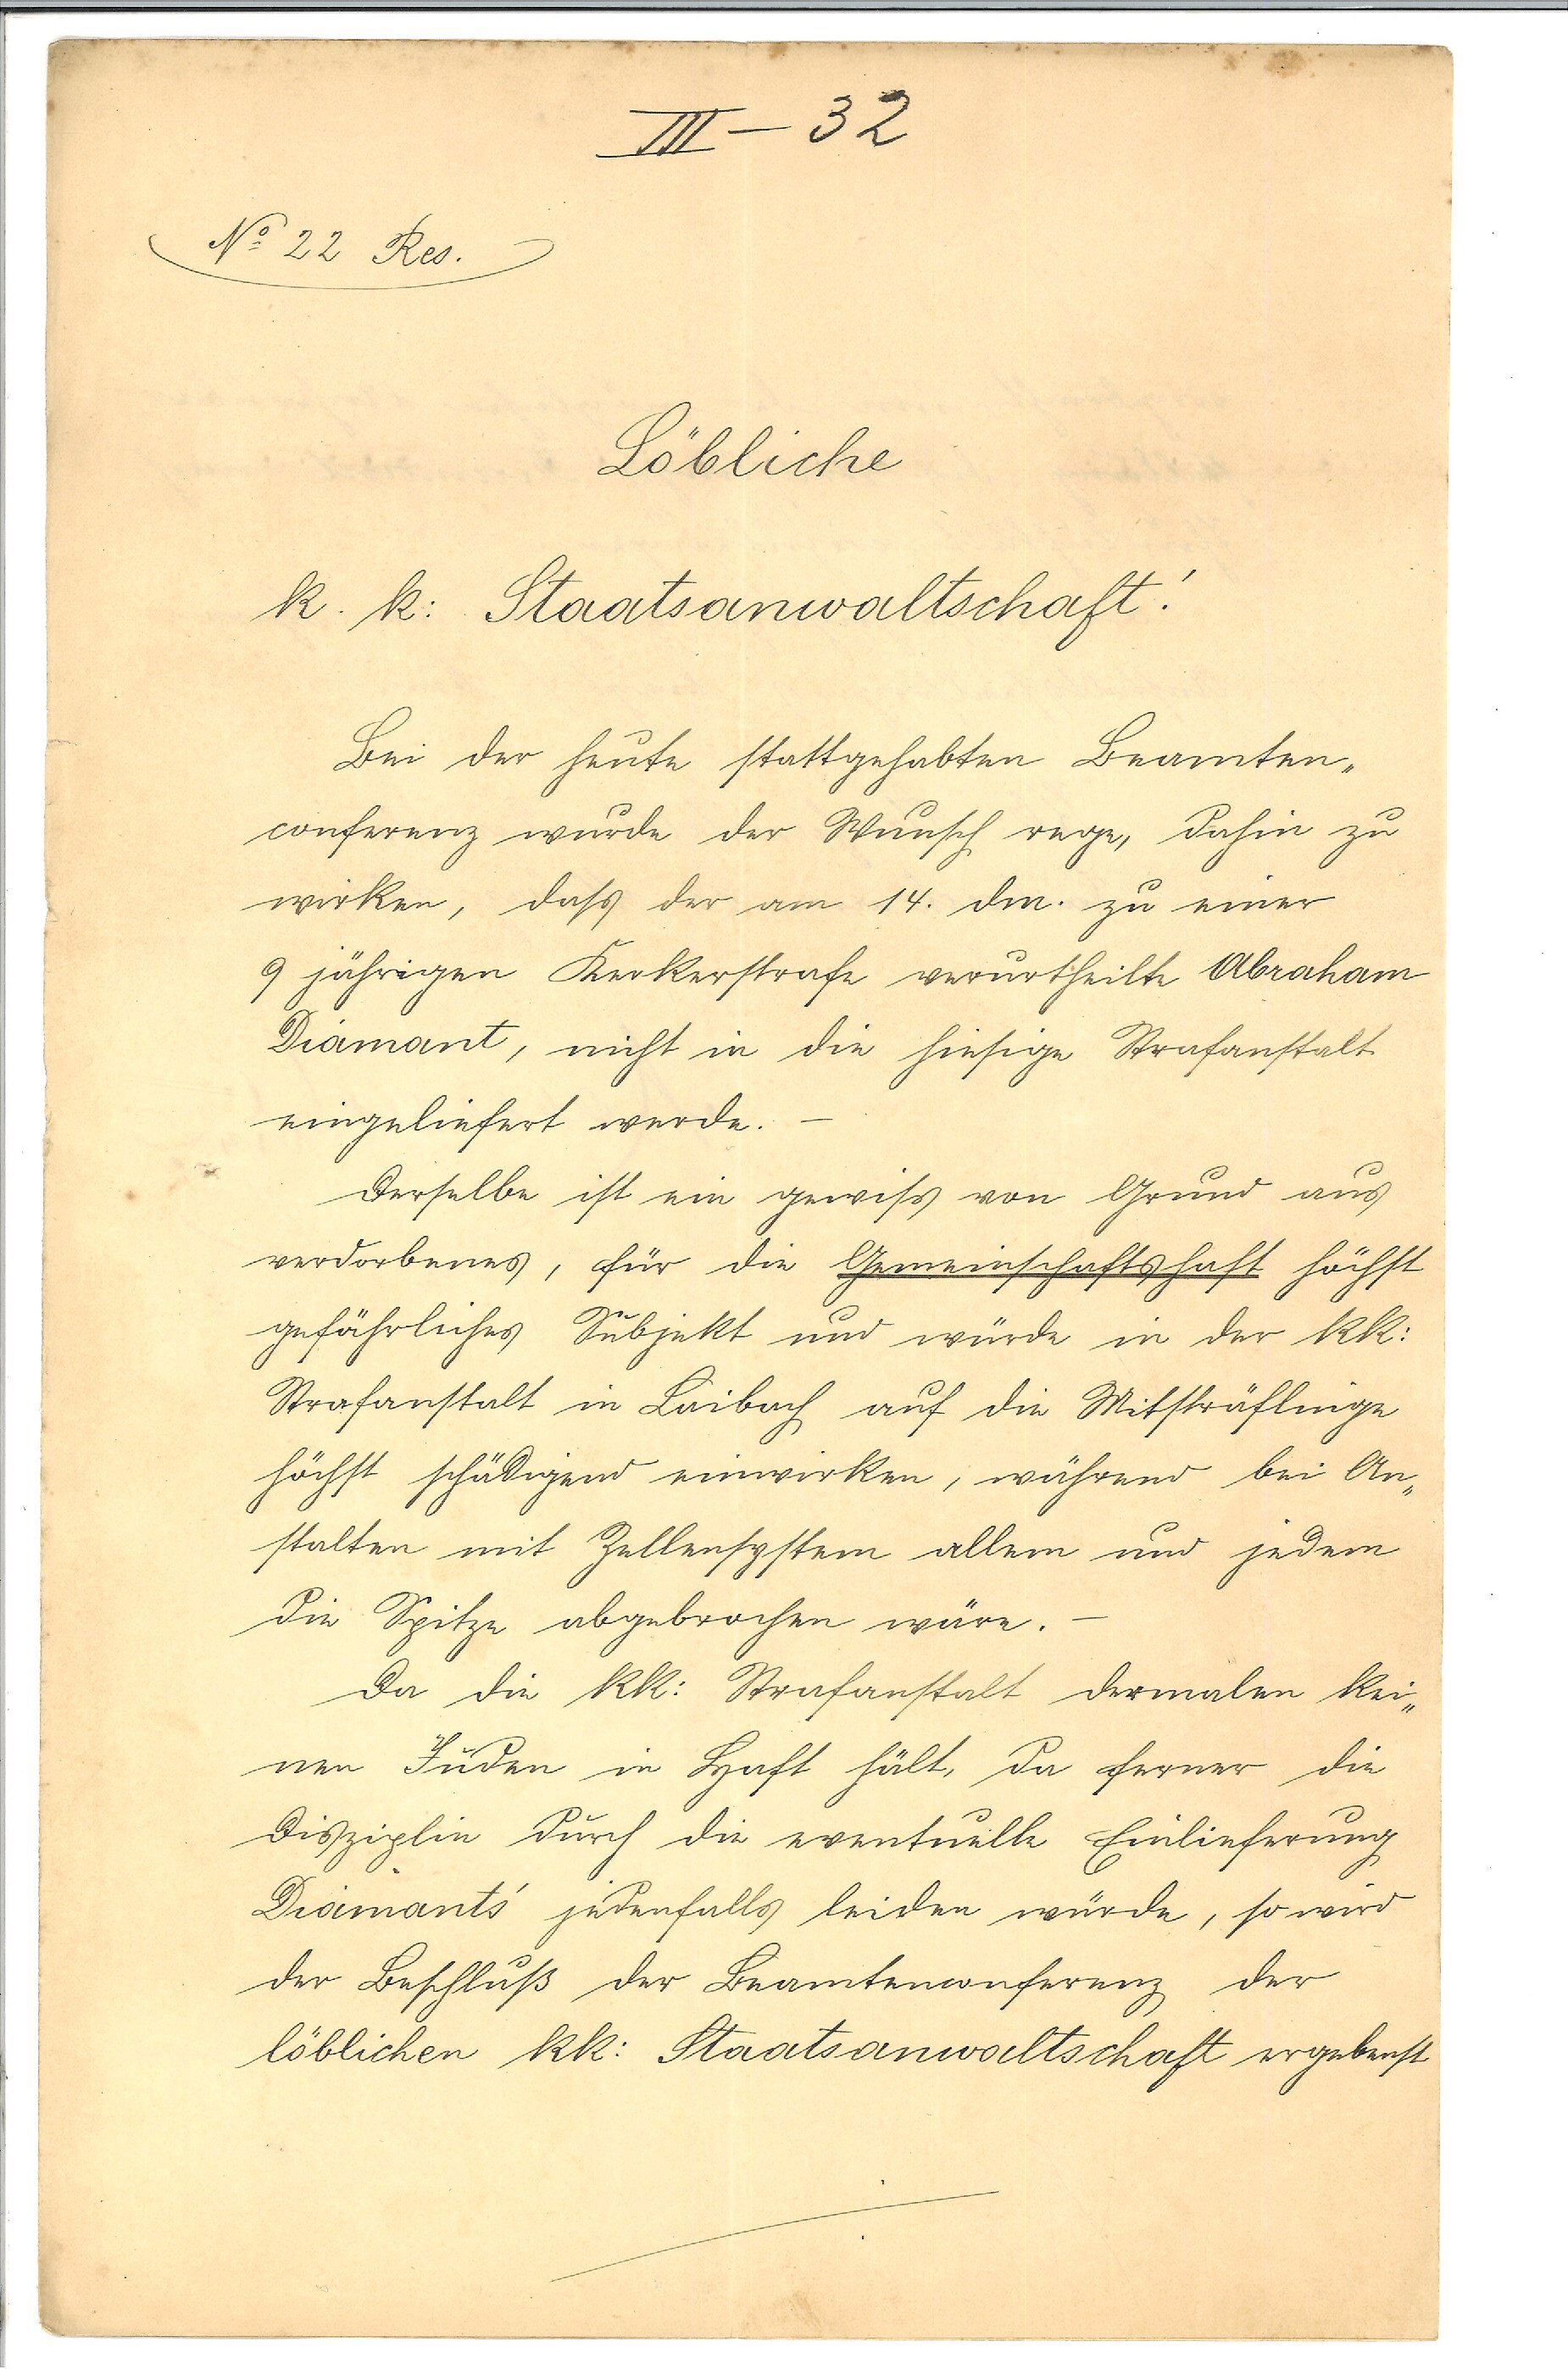 III — 32
No 22 Res.
Löbliche
k. k: Staatsanwaltschaft!
Bei der heute stattgehabten Beamten„
conferenz wurde der Wunsch rege, dahin zu
wirken, dass der am 14. dm. zu einer
9 jährigen Kerkerstrafe verurtheilte Abraham
Diamant, nicht in die hiesige Strafanstalt
eingeliefert werde. —
Derselbe ist ein gewiss von Grund aus
verdorbenes, für die Gemeinschaftshaft höchst
gefährliches Subjekt und würde in der kk:
Strafanstalt in Laibach auf die Mitsträflinge
höchst schädigend einwirken, während bei An„
stalten mit Zellensystem allem und jedem
die Spitze abgebrochen wäre. —
Da die kk: Strafanstalt dermalen kei„
nen Juden in Haft hält, da ferner die
Disziplin durch die eventuelle Einlieferung
Diamant's jedenfalls leiden würde, so wird
der Beschluß der Beamtenconferenz der
löblichen kk: Staatsanwaltschaft ergebenst